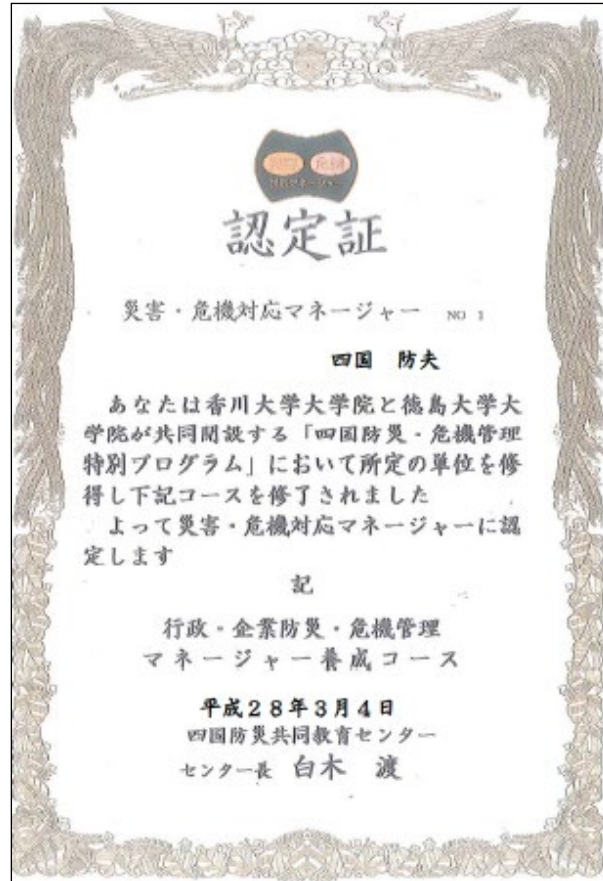 災害 危機
対応マネージャー
認定証
災害・危機対応マネージャー NO 1
四国 防夫
あなたは香川大学大学院と徳島大学大
学院が共同開設する「四国防災・危機管理
特別プログラム」において所定の単位を修
得し下記コースを修了されました
よって災害・危機対応マネージャーに認
定します
記
行政・企業防災・危機管理
マネージャー養成コース
平成28年3月4日
四国防災共同教育センター
センター長 白木 渡